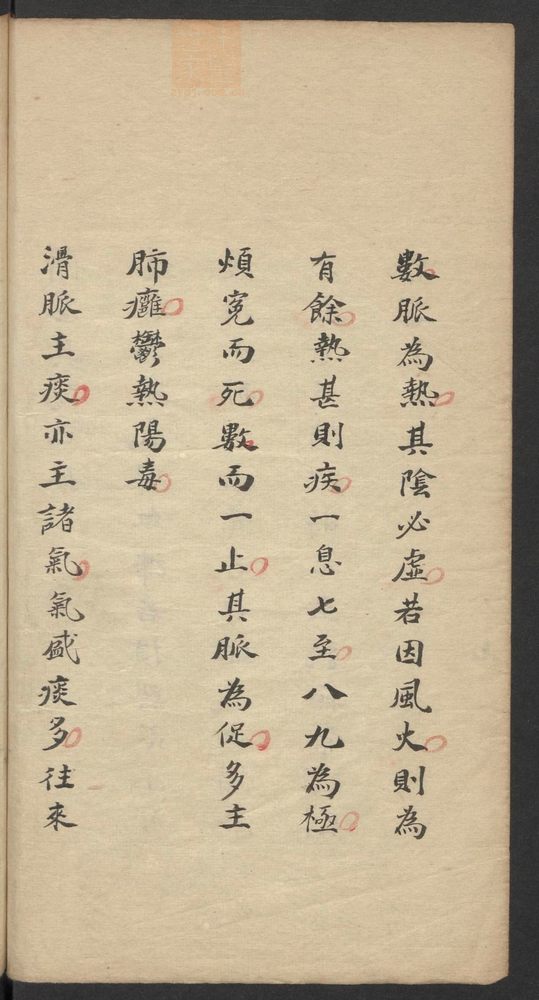 數脈為熱其陰必虛若因風火則為
有餘熱甚則疾一息七至八九為極
煩寃而死數而一止其脈為促多主
肺癰鬱熱陽毒
滑脈主痰亦主諸氣氣盛痰多往來